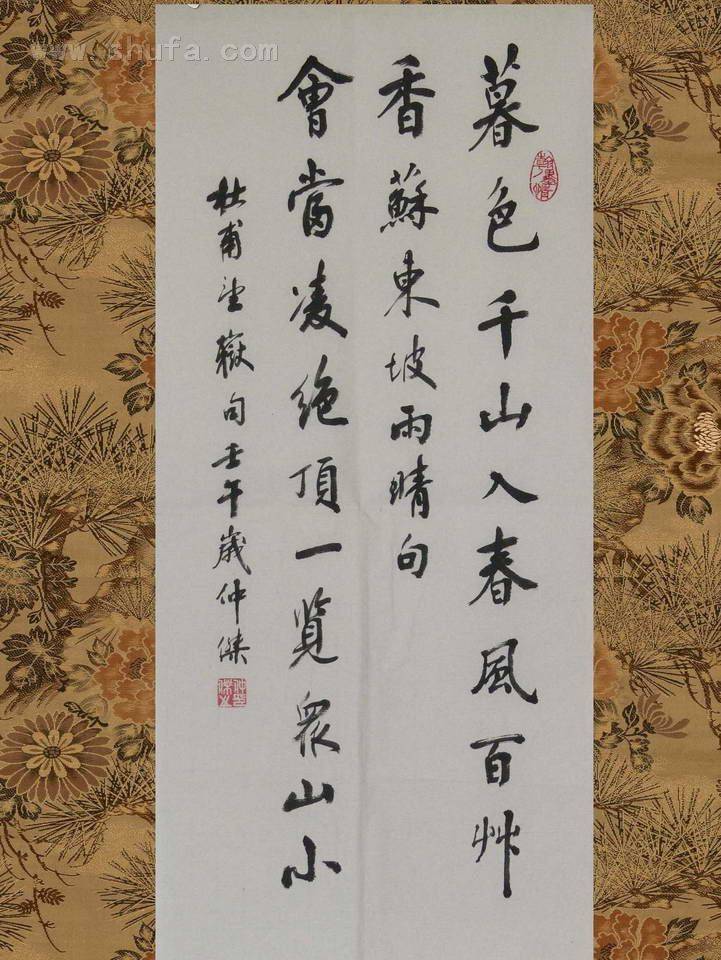 www.shufa.com
暮色千山入春風百艸
香蘇東坡雨晴句
會當凌絶頂一覧衆山小
杜甫望嶽句壬午歳仲傑